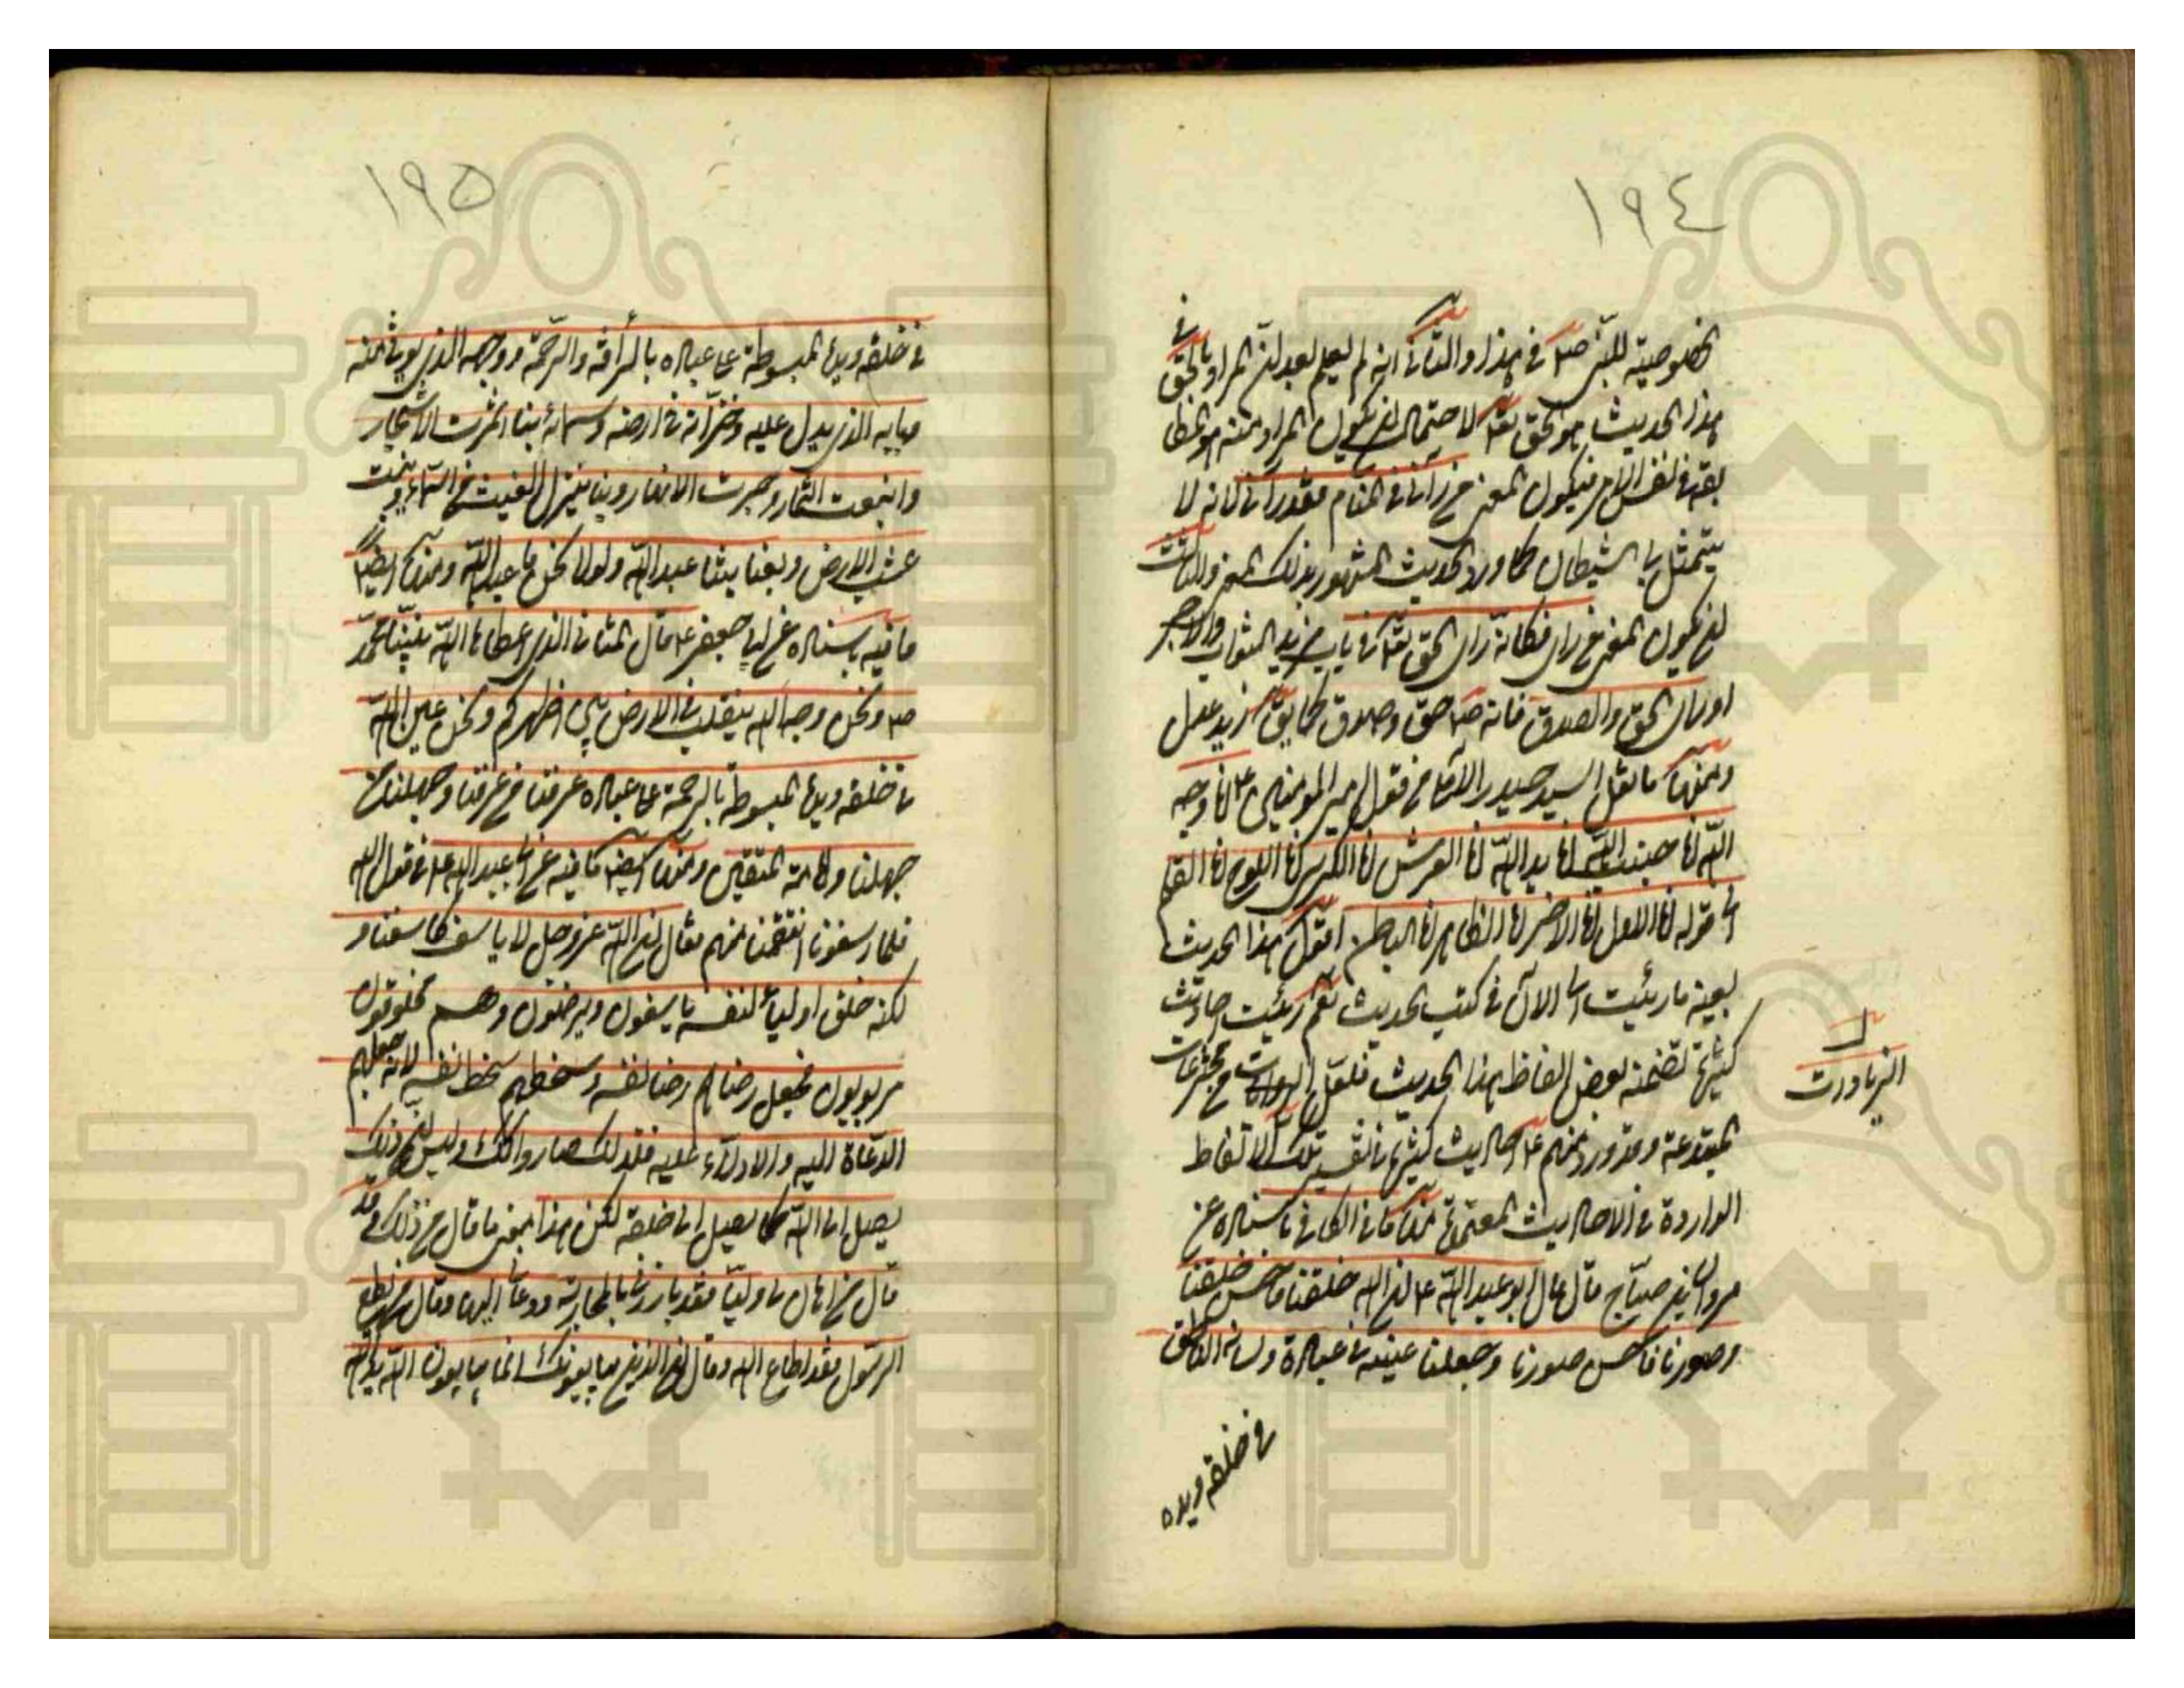 ١٩٤
خصوصية للنبي ص في هذا والثاني انه لم يعلم بعد ان المراد بالحق في
هذا الحديث هو الحق تعالى لاحتمال ان يكون المراد منه هو الحق
في نفس الامر فيكون المعنى من رآني في المنام فقد رآني لانه لا
يتمثل بي الشيطان كما ورد الحديث المشهور بذلك المعنى والثالث
ان يكون المعنى من رآني فكانه رأى الحق تعالى في باب مزيد الثواب والاجر
او رأى الحق والصدق فانه ص حق وصدق كما يق زيد عدل
ومنها ما نقل السيد حيدر الآملي من قول امير المؤمنين ع انا وجه
الله انا جنب الله انا يد الله انا العرش انا الكرسي انا اللوح انا القلم
الى قوله انا الاول انا الاخر انا الظاهر انا الباطن اقول هذا الحديث
بعينه ما رئيت الى الآن في كتب الحديث نعم رئيت احاديث
كثيرة تضمنه بعض الفاظ هذا الحديث فلعل من مخترعات
الزيادات
المبتدعة وقد ورد منهم ع احاديث كثيرة في تفسير تلك الالفاظ
الواردة في الاحاديث المعتمدة منها ما في الكافي باسناده عن
مروان بن صباح قال قال ابو عبد الله ع ان الله خلقنا فاحسن خلقنا
وصورنا فاحسن صورنا وجعلنا عينه في عباده ولسانه الناطق
في خلقه ويده
١٩٥
في خلقه ويده المبسوطة على عباده بالرأفة والرحمة ووجهه الذي يؤتى منه
وبابه الذي يدل عليه وخزانه في ارضه وسمائه بنا اثمرت الاشجار
واينعت الثمار وجرت الانهار وبنا ينزل الغيث من السماء وينبت
عشب الارض وبعبادتنا عبد الله ولولا نحن ما عبد الله ومنها ايضا
ما فيه باسناده عن ابي جعفر ع قال نحن المثاني الذي اعطاها الله نبينا محمد
ص ونحن وجه الله يتقلب في الارض بين اظهركم ونحن عين الله
في خلقه ويده المبسوطة بالرحمة على عباده عرفنا من عرفنا وجهلنا من
جهلنا وامامة المتقين ومنها ايضا ما فيه عن ابي عبد الله ع في قول الله
فلما اسفونا انتقمنا منهم فقال ان الله عز وجل لا ياسف كاسفنا و
لكنه خلق اولياء لنفسه ياسفون ويرضون وهم مخلوقون
مربوبون فجعل رضاهم رضا نفسه وسخطهم سخط نفسه لانه جعلهم
الدعاة اليه والادلاء عليه فلذلك صاروا كذلك وليس ان ذلك
يصل الى الله كما يصل الى خلقه لكن هذا معنى ما قال من ذلك وقد
قال من اهان لي وليا فقد بارزني بالمحاربة ودعاني اليها وقال من يطع
الرسول فقد اطاع الله وقال ان الذين يبايعونك انما يبايعون الله يد الله